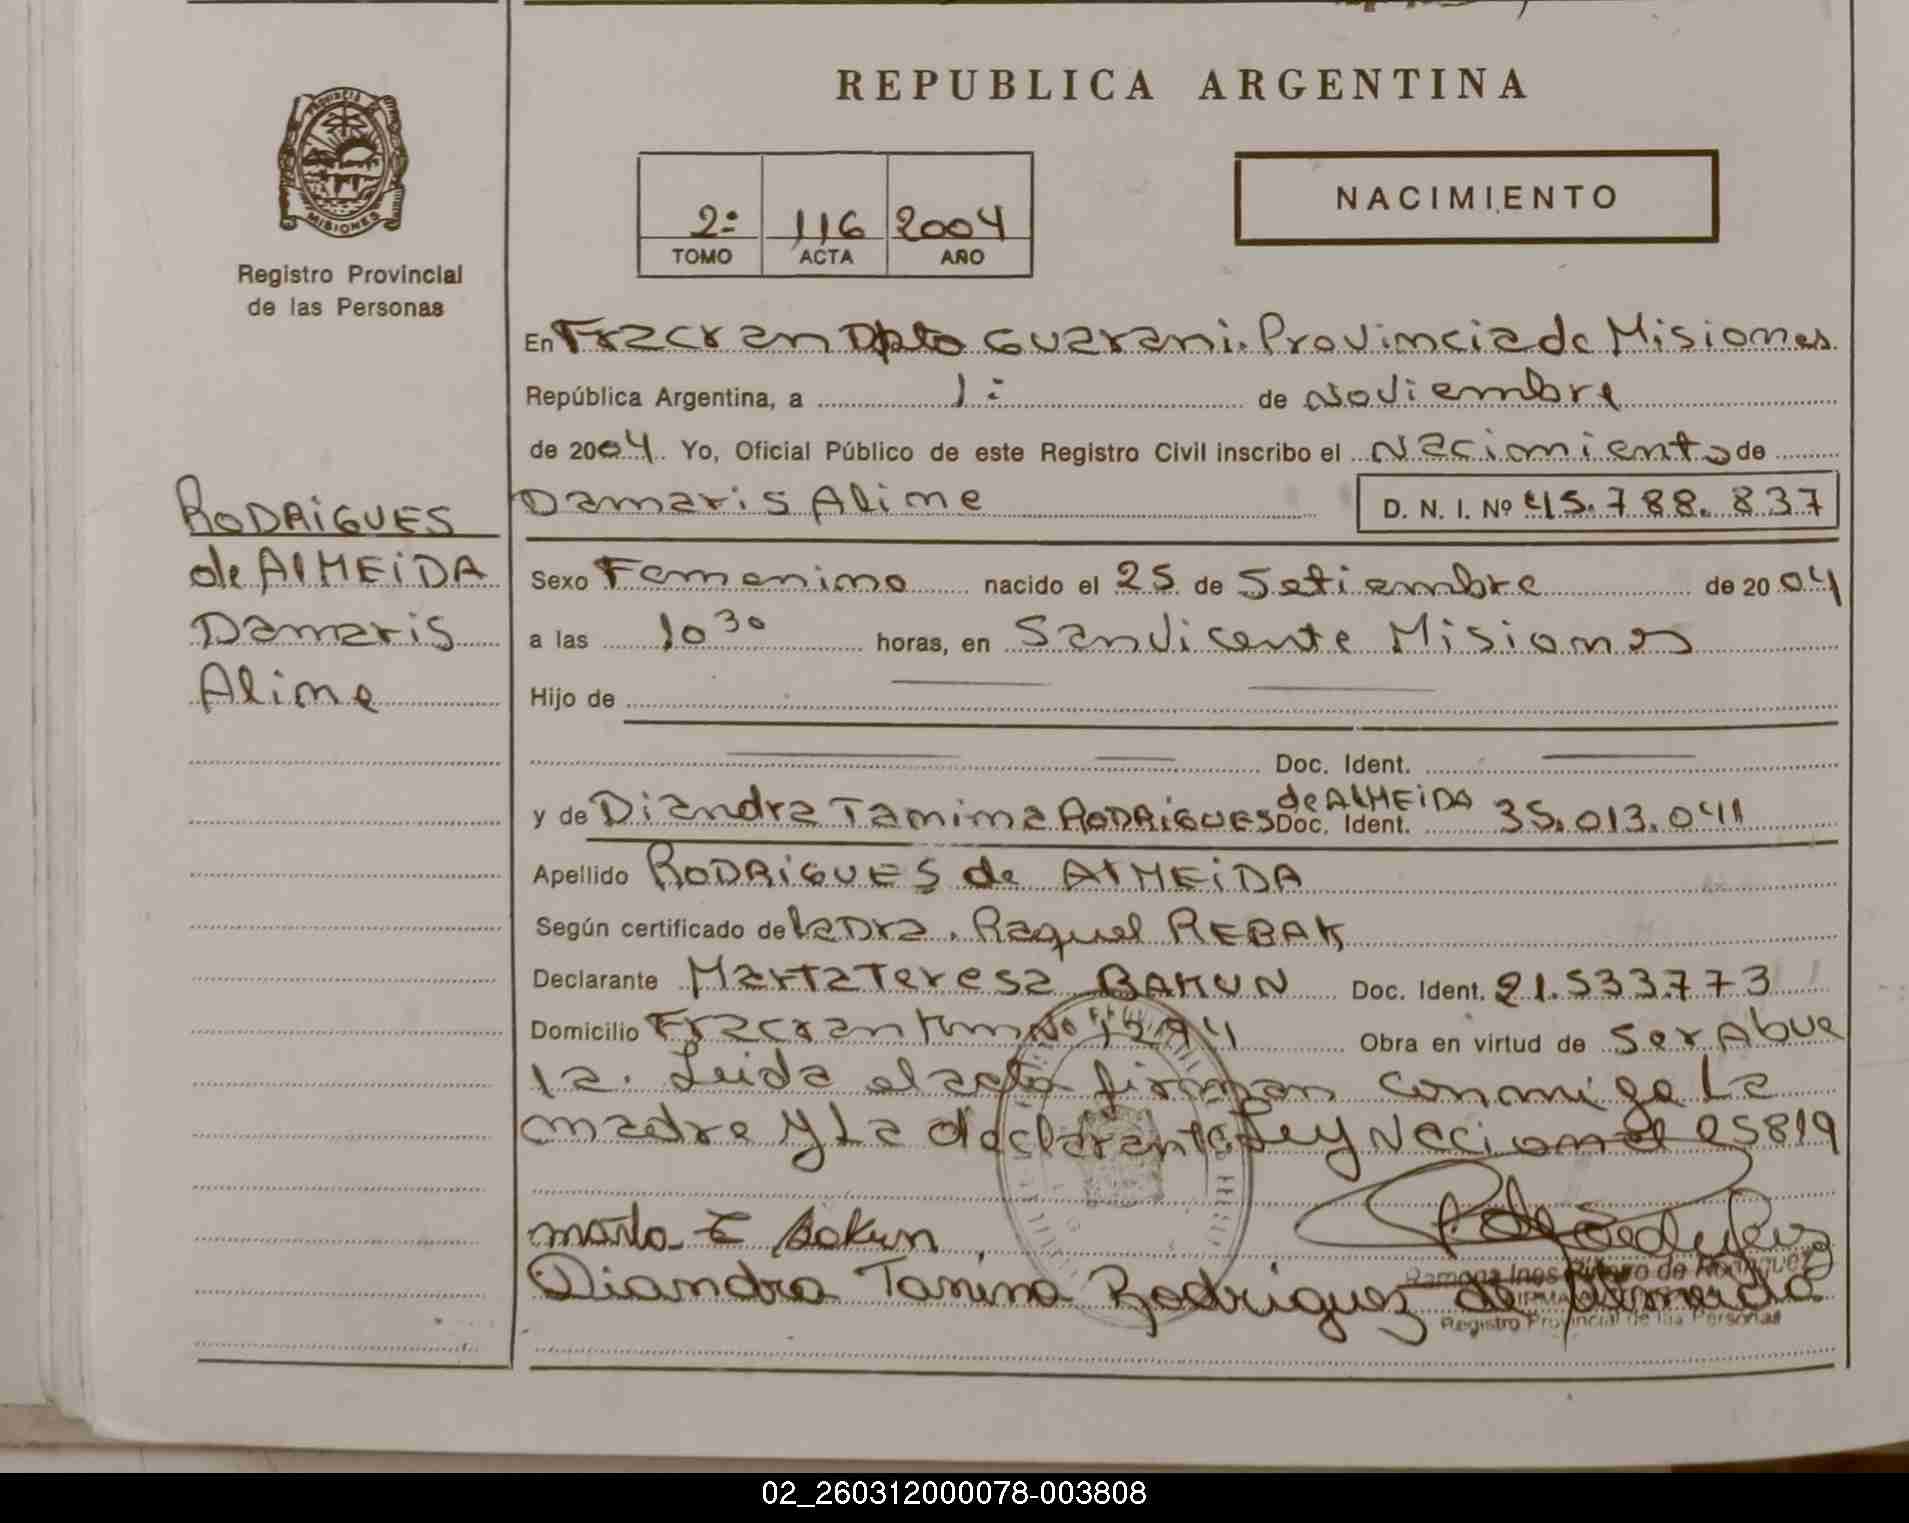 REPUBLICA ARGENTINA
PROVINCIA
MISIONES
Registro Provincial
de las Personas
2º 116 2004
TOMO ACTA AÑO
NACIMIENTO
RODRiGUES
de AlMEiDA
Damaris
Aline
En Fracran Dpto Guarani. Provincia de Misiones
República Argentina, a 1º de Noviembre
de 2004 Yo, Oficial Público de este Registro Civil inscribo el Nacimiento de
Damaris Aline D. N. I. Nº 45.788.837
Sexo Femenino nacido el 25 de Setiembre de 2004
a las 10 30 horas, en San Vicente Misiones
Hijo de
Doc. Ident.
y de Diandra Tanina RODRiGUES de AlMEiDA Doc. Ident. 35.013.041
Apellido RODRiGUES de AlMEiDA
Según certificado de la Dra. Raquel REBAK
Declarante Marta Teresa BAKUN Doc. Ident. 21.533.773
Domicilio Fracran Km Nº 1294 Obra en virtud de Ser Abue
la. Leida el acta firman conmigo La
madre y La declarante Ley Nacional 25819
Marta T Bakun
Diandra Tanina Rodriguez de Almeida
Ramona Ines de Rodriguez
Registro Provincial de las Personas
02_260312000078-003808